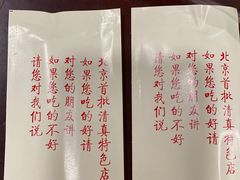 北京首批清真特色店
如果您吃的好请
对您的朋友讲
如果您吃的不好
请您对我们说
北京首批清真特色店
如果您吃的好请
对您的朋友讲
如果您吃的不好
请您对我们说